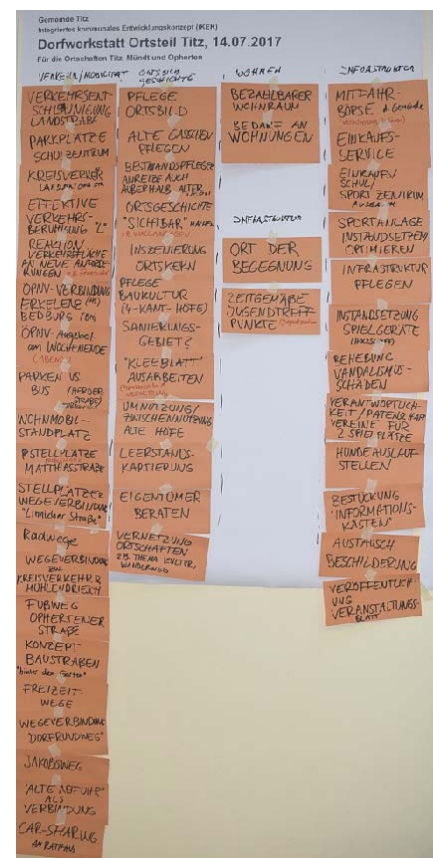 Gemeinde Titz
Integriertes kommunales Entwicklungskonzept (IKEK)
Dorfwerkstatt Ortsteil Titz, 14.07.2017
Für die Ortschaften Titz, Müntz und Opherten
VERKEHR/MOBILITÄT
VERKEHRSENT-
SCHLEUNIGUNG
LANDSTRAßE
PARKPLÄTZE
SCHULZENTRUM
KREISVERKEHR
EFFEKTIVE
VERKEHRS-
BERUHIGUNG
REAKTION
VERKEHRSFLÄCHE
AN NEUE ANFORDE-
RUNGEN
ÖPNV-VERBINDUNG
ERKELENZ
BEDBURG
ÖPNV-Angebot
am WOCHENENDE
(ABEND)
PARKEN VS
BUS
WOHNMOBIL-
STANDPLATZ
STELLPLÄTZE
WEGEVERBINDUNG
"Linnicher Straße"
Radwege
WEGEVERBINDUNG
KREISVERKEHR &
FUßWEG
OPHERTENER
STRAßE
KONZEPT
BAUSTRAßEN
"hinter den Gärten"
FREIZEIT-
WEGE
WEGEVERBINDUNG
JAKOBSWEG
ALS
VERBINDUNG
CAR-SHARING
AM RATHAUS
ORTSBILD
GESCHICHTE
PFLEGE
ORTSBILD
ALTE GASSEN
PFLEGEN
BESTANDSPFLEGE
ANREIZE AUCH
AUßERHALB ALTER
ORTSGESCHICHTE
"SICHTBAR" MACHEN
INSZENIERUNG
ORTSKERN
PFLEGE
BAUKULTUR
(4-KANT-HÖFE)
SANIERUNGS-
GEBIET?
"KLEEBLATT"
AUSARBEITEN
UMNUTZUNG/
ZWISCHENNUTZUNG
ALTE HÖFE
LEERSTANDS-
KARTIERUNG
EIGENTÜMER
BERATEN
VERNETZUNG
ORTSCHAFTEN
Z.B. THEMA KULTUR,
WANDERWEG
WOHNEN
BEZAHLBARER
WOHNRAUM
BEDARF AN
WOHNUNGEN
INFRASTRUKTUR
ORT DER
BEGEGNUNG
ZEITGEMÄßE
JUGENDTREFF
PUNKTE
INFRASTRUKTUR
MITFAHR-
BÖRSE
EINKAUFS-
SERVICE
EINKAUFEN
SCHUL/
SPORTZENTRUM
SPORTANLAGE
INSTANDSETZEN/
OPTIMIEREN
INFRASTRUKTUR
PFLEGEN
INSTANDSETZUNG
SPIELGERÄTE
BEHEBUNG
VANDALISMUS-
SCHÄDEN
VERANTWORTLICH-
KEIT/PATENSCHAFT
VEREINE FÜR
2 SPIELPLÄTZE
HUNDEAUSLAUF
STELLEN
BESTÜCKUNG
"INFORMATIONS-
KÄSTEN"
AUSTAUSCH
BESCHILDERUNG
VERÖFFENTLICH-
UNG
VERANSTALTUNGS-
BLATT